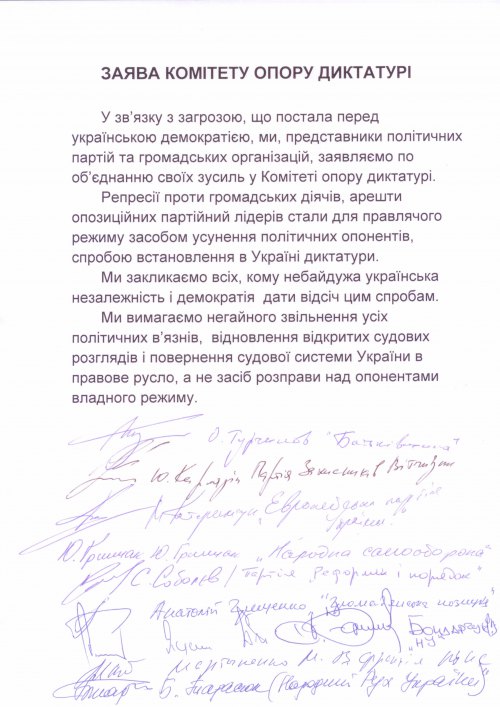 ЗАЯВА КОМІТЕТУ ОПОРУ ДИКТАТУРІ
У зв’язку з загрозою, що постала перед
українською демократією, ми, представники політичних
партій та громадських організацій, заявляємо по
об’єднанню своїх зусиль у Комітеті опору диктатурі.
Репресії проти громадських діячів, арешти
опозиційних партійний лідерів стали для правлячого
режиму засобом усунення політичних опонентів,
спробою встановлення в Україні диктатури.
Ми закликаємо всіх, кому небайдужа українська
незалежність і демократія дати відсіч цим спробам.
Ми вимагаємо негайного звільнення усіх
політичних в’язнів, відновлення відкритих судових
розглядів і повернення судової системи України в
правове русло, а не засіб розправи над опонентами
владного режиму.
О. Турчинов "Батьківщина"
Ю. Кармазін Партія Захисників Вітчизни
"Європейська партія
України"
Ю. Гримчак Ю. Гримчак "Народна самооборона"
С. Соболєв / Партія "Реформи і порядок"
Анатолій Гриценко "Громадянська позиція"
Мартиненко М.
Б. Тарасюк (Народний Рух України)